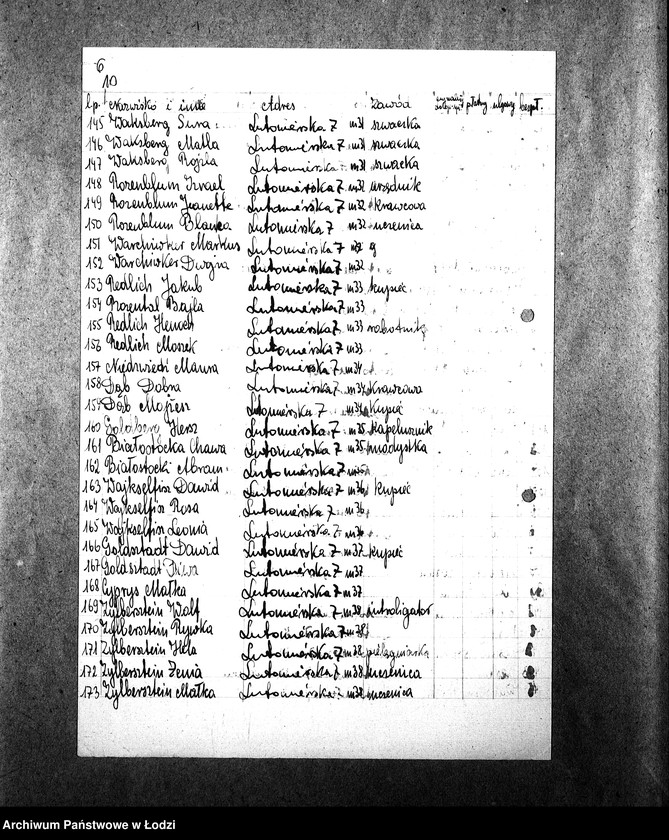 6
10
l.p. Nazwisko i imię Adres Zawód płatny ulgowy bezpł.
145 Waksberg Sura Lutomierska 7 m31 szwaczka
146 Waksberg Malla Lutomierska 7 m31 szwaczka
147 Waksberg Rojzla Lutomierska 7 m31 szwaczka
148 Rozenblum Izrael Lutomierska 7 m32 urzędnik
149 Rozenblum Jeanette Lutomierska 7 m32 krawcowa
150 Rozenblum Blanka Lutomierska 7 m32 uczenica
151 Warchiwker Markus Lutomierska 7 m32
152 Warchiwker Dwojra Lutomierska 7 m32
153 Redlich Jakub Lutomierska 7 m33 kupiec
154 Rozental Bajla Lutomierska 7 m33
155 Redlich Henoch Lutomierska 7 m33 robotnik
156 Redlich Moszek Lutomierska 7 m33
157 Niedzwiecki Lutomierska 7 m34
158 Dąb Dobra Lutomierska 7 m34 krawcowa
159 Dąb Mojżesz Lutomierska 7 m34 kupiec
160 Goldberg Hersz Lutomierska 7 m35 kapelusznik
161 Białostocka Chawa Lutomierska 7 m35 modystka
162 Białostocki Abram Lutomierska 7
163 Wajkselfisz Dawid Lutomierska 7 m36 kupiec
164 Wajkselfisz Rosa Lutomierska 7 m36
165 Wajkselfisz Leonia Lutomierska 7 m36
166 Goldsztadt Dawid Lutomierska 7 m37 kupiec
167 Goldsztadt Lutomierska 7 m37
168 Cyprys Małka Lutomierska 7 m37
169 Zylbersztein Wolf Lutomierska 7 m38 introligator
170 Zylbersztein Rywka Lutomierska 7 m38
171 Zylbersztein Hela Lutomierska 7 m38 pielęgniarka
172 Zylbersztein Zenia Lutomierska 7 m38 uczenica
173 Zylbersztein Małka Lutomierska 7 m38 uczenica
Archiwum Państwowe w Łodzi